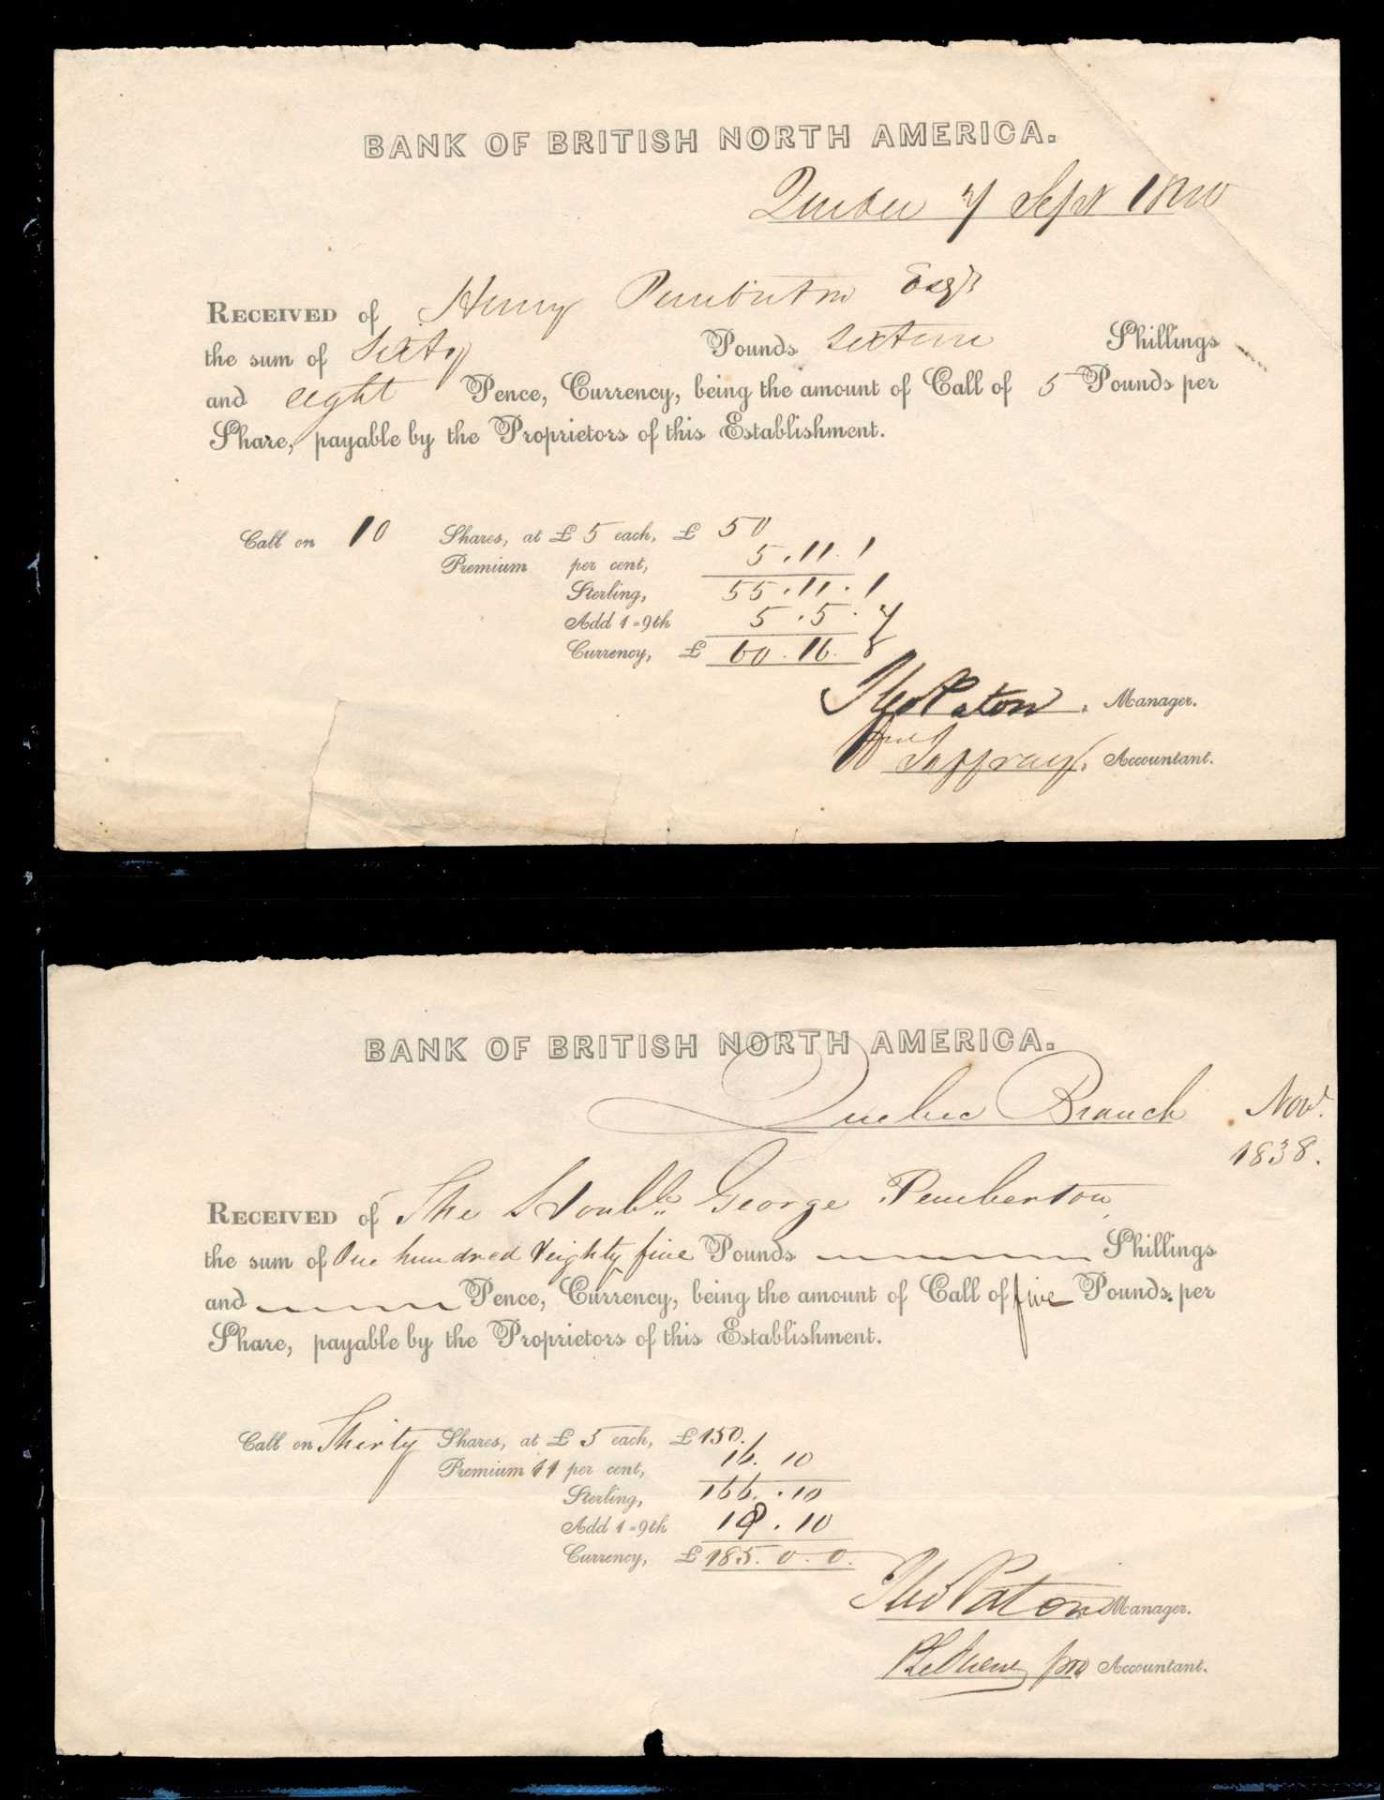 BANK OF BRITISH NORTH AMERICA.
Quebec 7 Sept 1840
RECEIVED of Henry Pemberton Esqr
the sum of Sixty Pounds Sixteen Shillings
and eight Pence, Currency, being the amount of Call of 5 Pounds per
Share, payable by the Proprietors of this Establishment.
Call on 10 Shares, at £ 5 each, £ 50
Premium per cent, 5.11.1
Sterling, 55.11.1
Add 1-9th 5.5.7
Currency, £ 60.16.8
Tho Paton. Manager.
Jaffray, Accountant.
BANK OF BRITISH NORTH AMERICA.
Quebec Branch Novr.
1838.
RECEIVED of The Honble George Pemberton
the sum of One hundred & eighty five Pounds Shillings
and Pence, Currency, being the amount of Call of five Pounds per
Share, payable by the Proprietors of this Establishment.
Call on Thirty Shares, at £ 5 each, £ 150.
Premium 11 per cent, 16.10
Sterling, 166.10
Add 1-9th 18.10
Currency, £ 185.0.0.
Tho Paton Manager.
pro Accountant.